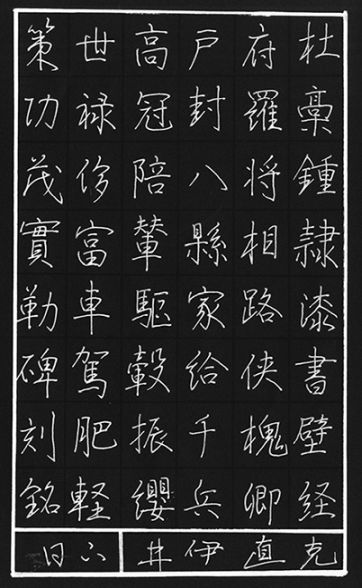 杜稾鍾隷漆書壁経
府羅将相路侠槐卿
戸封八縣家給千兵
高冠陪輦驅轂振纓
世禄侈富車駕肥軽
策功茂實勒碑刻銘
克直伊井